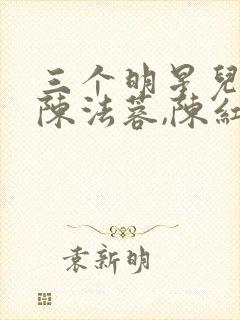 三个明星兒
陳法蓉,陳紅
袁新明